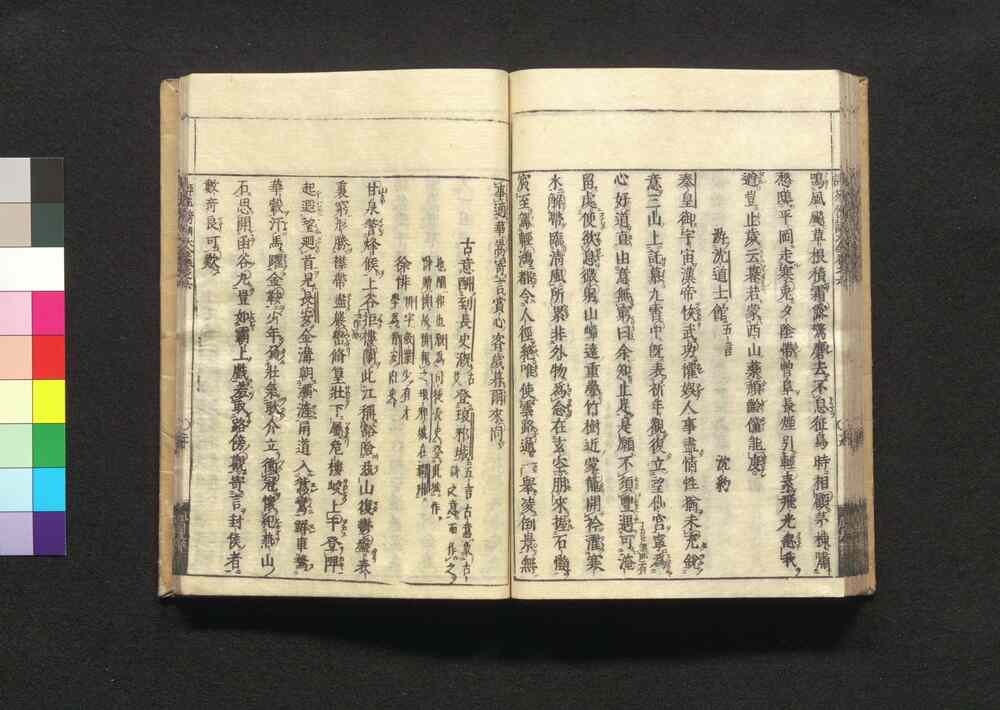 鳴風颸草根積霜露驚麏去不息征鳥時相顧茅棟嘯
愁鴟平岡走寒兎夕陰帶曽阜長煙引輕素飛光忽我
遒豈止歳云暮若蒙西山薬頽齢儻能度
游沈道士館 五言 沈約
秦皇御宇宙漢帝恢武功懽娯人事盡情性猶未充鋭
意三山上託慕九霄中既表祈年觀復立望仙宮寧爲
心好道直由意無窮曰余知止足是願不須豊遇可淹
留處便欲息微躬山嶂遠重疊竹樹近蒙籠開衿濯寒
水解帶臨清風所累非外物爲念在玄空朋來握石髓
賓至駕輕鴻都令人徑絶唯使雲路通一舉凌倒景無
事適華嵩寄言賞心客歳暮爾來同
古意酬到長史溉登琅邪城
徐悱
甘泉警烽候上谷拒樓蘭此江稱豁險茲山復鬱盤表
裏窮形勝襟帶盡巖巒脩篁壯下屬危樓峻上干登陴
起遐望廻首見長安金溝朝灞滻甬道入鴛鸞鮮車騖
華轂汗馬躍金鞍少年負壯氣耿介立衝冠懷紀燕山
石思開函谷丸豈如霸上戯羞取路傍觀寄言封侯者
數奇良可歎